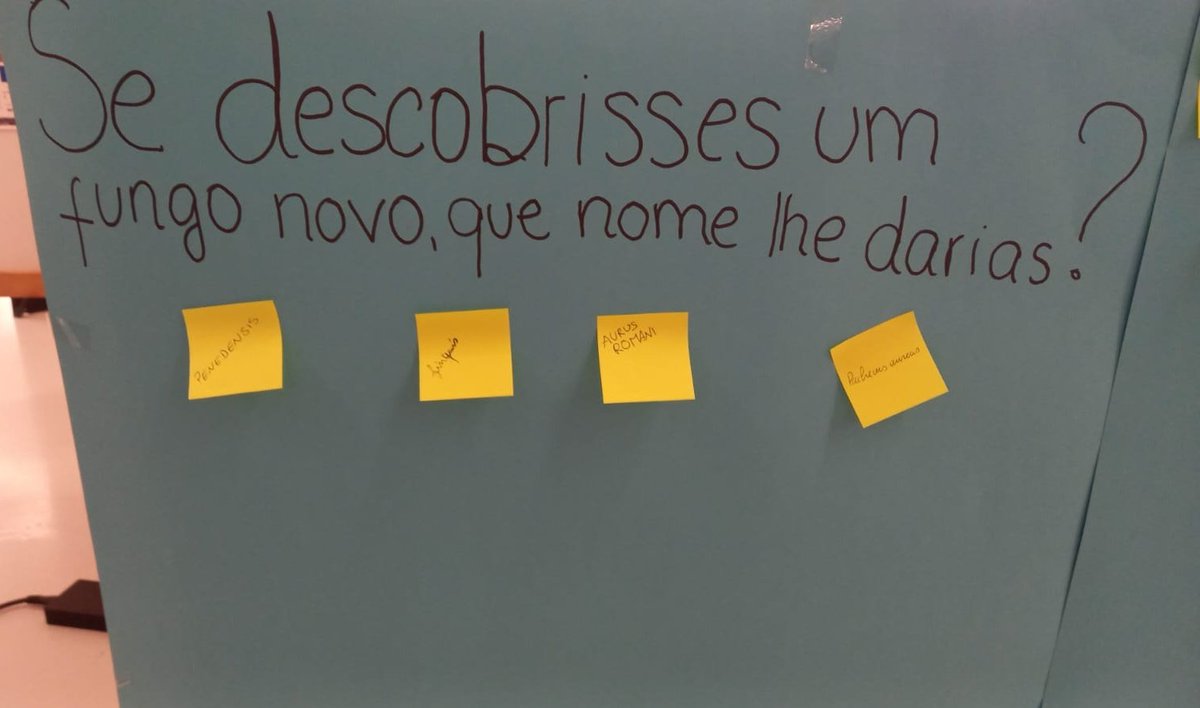 Se descobrisses um
fungo novo, que nome lhe darias?
PENEDENSIS
AURUS
ROMANI